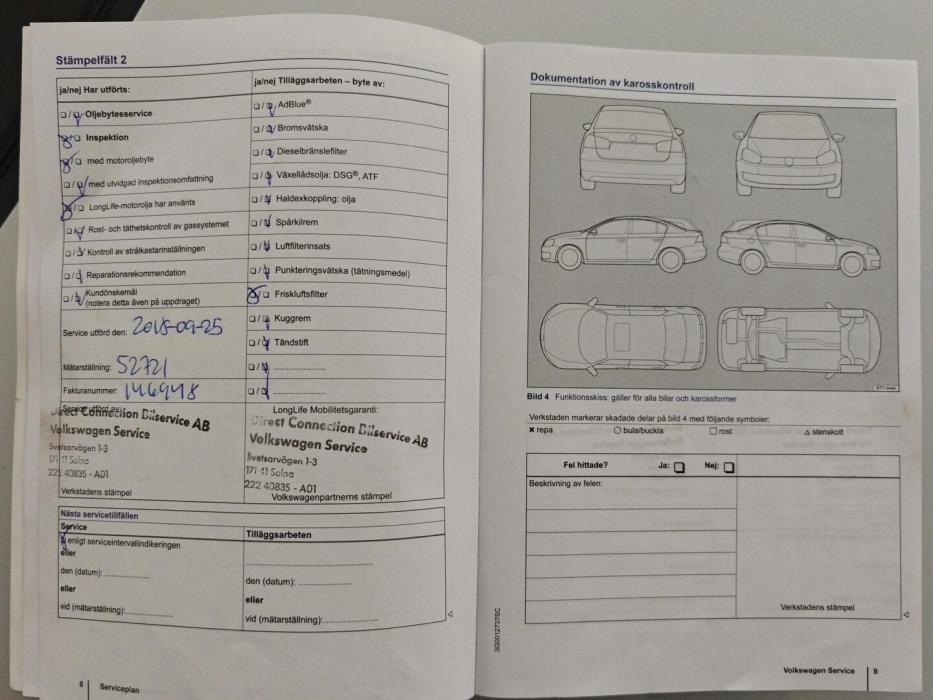 Stämpelfält 2
ja/nej Har utförts:
☐/☑ Oljebytesservice
☒/☐ Inspektion
☒/☐ med motoroljebyte
☐/☑ med utvidgad inspektionsomfattning
☒/☐ LongLife-motorolja har använts
☐/☑ Rost- och täthetskontroll av gassystemet
☐/☑ Kontroll av strålkastarinställningen
☐/☑ Reparationsrekommendation
☐/☑ Kundönskemål
(notera detta även på uppdraget)
Service utförd den: 2018-09-25
Mätarställning: 52721
Fakturanummer: 146948
Direct Connection Bilservice AB
Volkswagen Service
Svetsarvägen 1-3
171 41 Solna
222 40835 - A01
Verkstadens stämpel
ja/nej Tilläggsarbeten – byte av:
☐/☑ AdBlue®
☐/☑ Bromsvätska
☐/☑ Dieselbränslefilter
☐/☑ Växellådsolja: DSG®, ATF
☐/☑ Haldexkoppling: olja
☐/☑ Spårkilrem
☐/☑ Luftfilterinsats
☐/☑ Punkteringsvätska (tätningsmedel)
☒/☐ Friskluftsfilter
☐/☑ Kuggrem
☐/☑ Tändstift
☐/☑ ....................
☐/☑ ....................
LongLife Mobilitetsgaranti:
Direct Connection Bilservice AB
Volkswagen Service
Svetsarvägen 1-3
171 41 Solna
222 40835 - A01
Volkswagenpartnerns stämpel
Nästa servicetillfällen
Service
enligt serviceintervallindikeringen
eller
den (datum): ................
eller
vid (mätarställning): ................
Tilläggsarbeten
........................................
den (datum): ................
eller
vid (mätarställning): ................
8 Serviceplan
Dokumentation av karosskontroll
Bild 4 Funktionsskiss: gäller för alla bilar och karossformer
Verkstaden markerar skadade delar på bild 4 med följande symboler:
× repa ○ bula/buckla □ rost △ stenskott
Fel hittade? Ja: ☐ Nej: ☐
Beskrivning av felen:
Verkstadens stämpel
3G0012737SC
Volkswagen Service 9